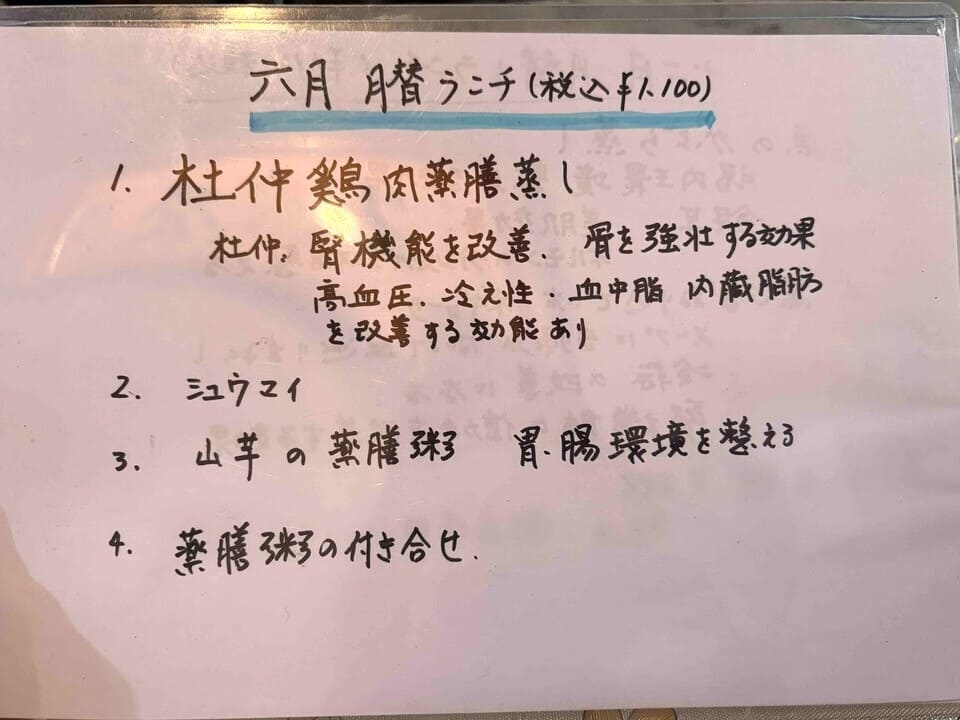 六月 月替ランチ(税込¥1,100)
1. 杜仲鶏肉薬膳蒸し
杜仲: 腎機能を改善、骨を強壮する効果
高血圧、冷え性・血中脂 内臓脂肪
を改善する効能あり
2. シュウマイ
3. 山芋の薬膳粥 胃.腸環境を整える
4. 薬膳粥の付き合せ.